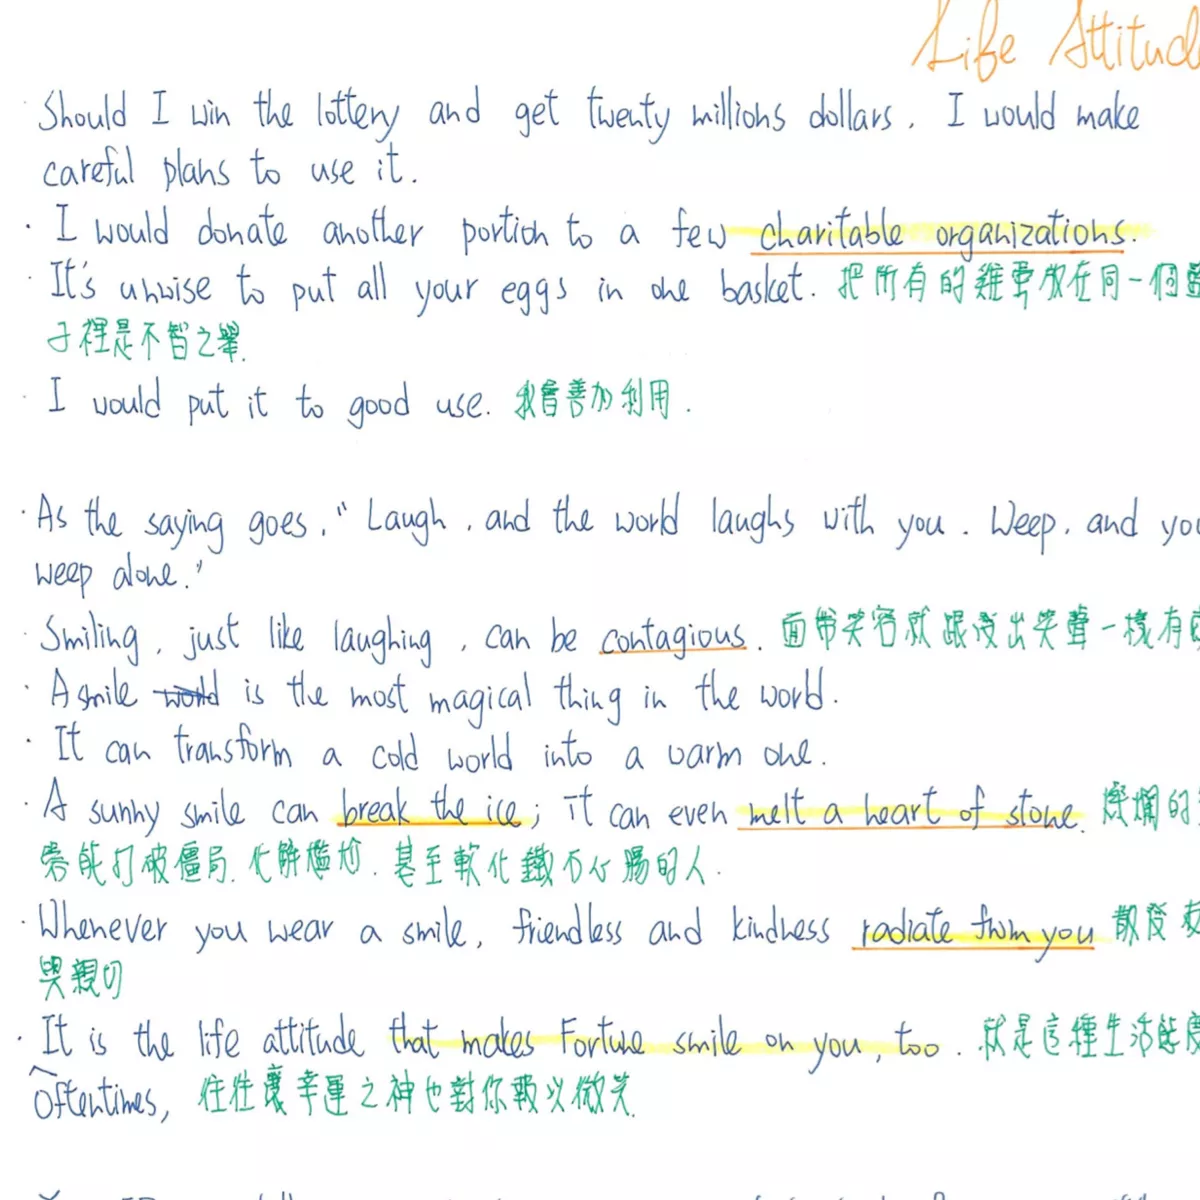 Life Attitud
· Should I win the lottery and get twenty millions dollars. I would make
careful plans to use it.
· I would donate another portion to a few charitable organizations.
· It's unwise to put all your eggs in one basket. 把所有的雞蛋放在同一個
子裡是不智之舉.
· I would put it to good use. 我會善加利用.
· As the saying goes, "Laugh, and the world laughs with you. Weep, and you
weep alone."
· Smiling, just like laughing, can be contagious. 面帶笑容就跟發出笑聲一樣有
· A smile world is the most magical thing in the world.
· It can transform a cold world into a warm one.
· A sunny smile can break the ice; it can even melt a heart of stone. 燦爛的
容能打破僵局. 化解尷尬. 甚至軟化鐵石心腸的人.
· Whenever you wear a smile, friendless and kindness radiate from you 散發
與親切
· It is the life attitude that makes Fortune smile on you, too. 就是這種生活態度
Oftentimes, 往往讓幸運之神也對你報以微笑.